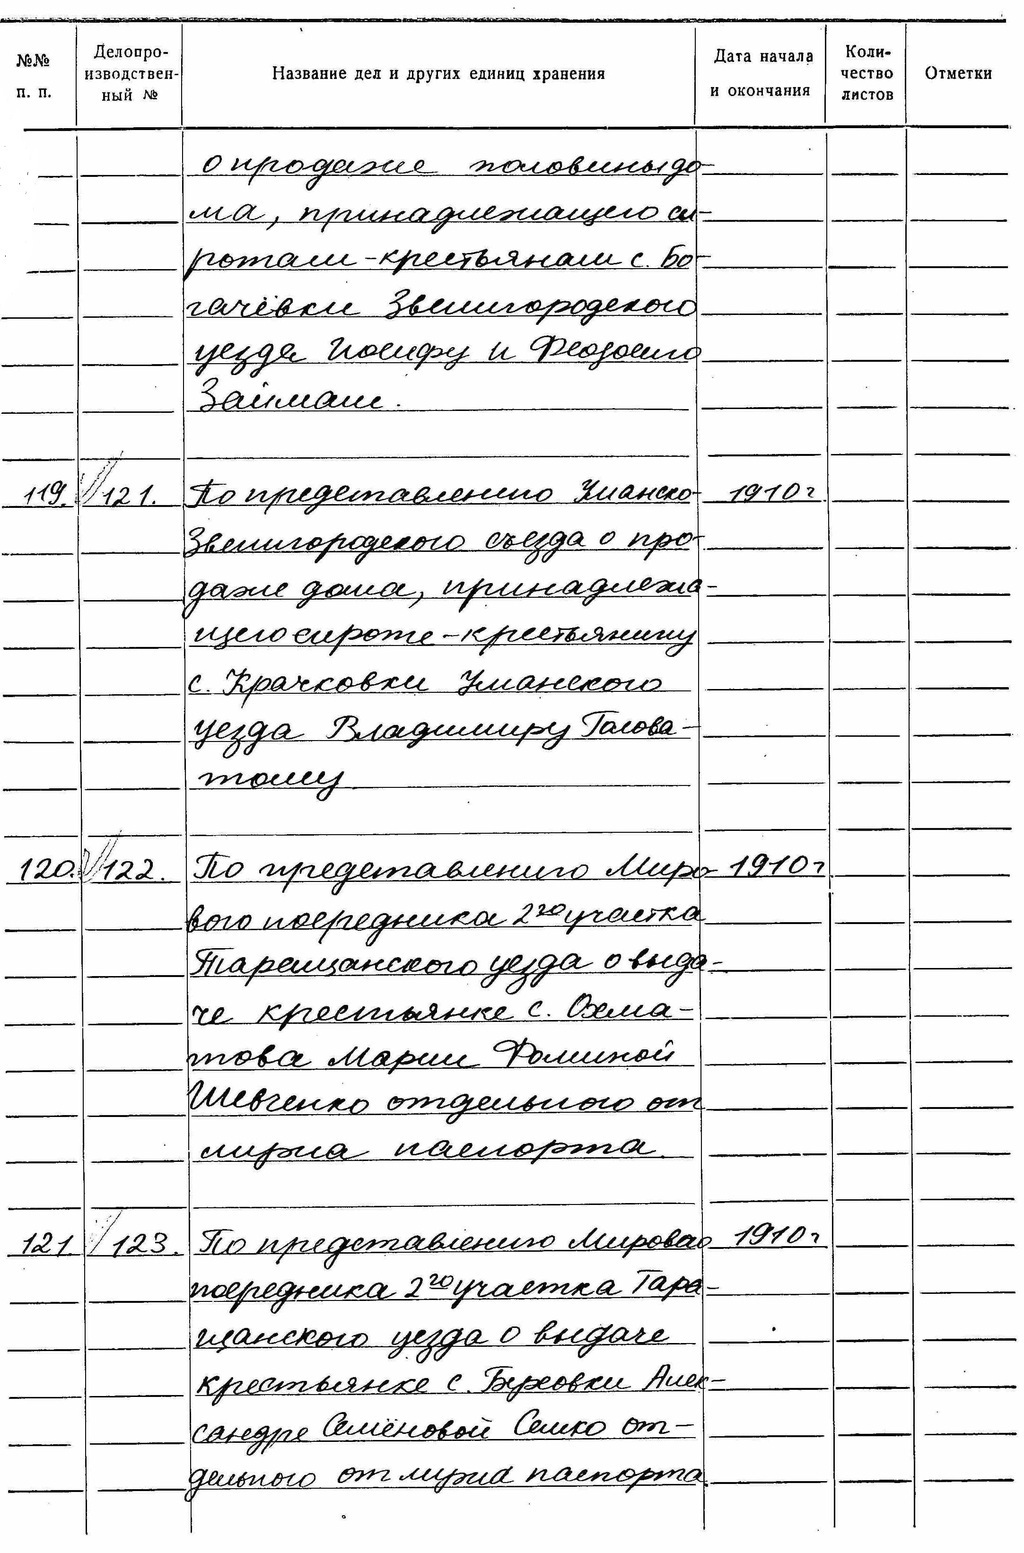 №№ п. п. Делопроизводственный № Название дел и других единиц хранения Дата начала и окончания Количество листов Отметки
о продаже половины до-
ма, принадлежащего си-
ротам-крестьянам с. Бо-
гачёвки Звенигородского
уезда Иосифу и Феодосию
Займам.
119. 121. По представлению Уманско- 1910 г
Звенигородского съезда о про-
даже дома, принадлежа-
щего сироте-крестьянину
с. Крачковки Уманского
уезда Владимиру Голова-
тому
120. 122. По представлению Миро- 1910 г
вого посредника 2го участка
Таращанского уезда о выда-
че крестьянке с. Охма-
това Марии Фоминой
Шевченко отдельного от
мужа паспорта
121 123. По представлению Мирового 1910 г
посредника 2го участка Тара-
щанского уезда о выдаче
крестьянке с. Буховки Алек-
сандре Семёновой Семко от-
дельного от мужа паспорта